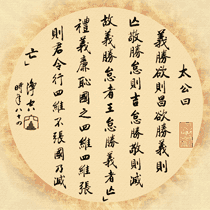 太公曰
義勝欲則昌欲勝義則
亡敬勝怠則吉怠勝敬則滅
故義勝怠者王怠勝義者亡
禮義廉恥國之四維四維張
則君令行四維不張國乃滅
亡
淨空
時年八十四